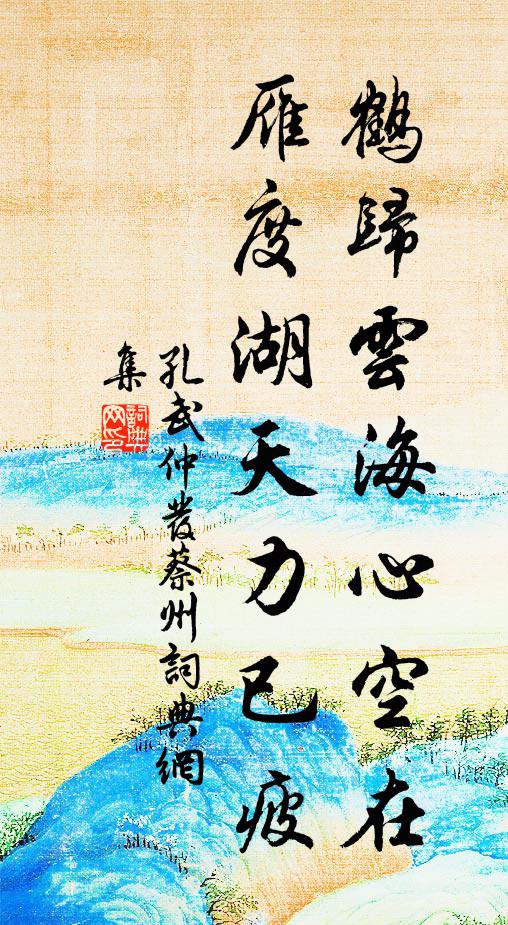 鶴歸雲海心空在
雁度湖天力已疲
孔武仲發蔡州詞典網
集
詞典網印